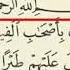 ـلله الرحـ
بِأَصْحَٰبِ ٱلْفِيـ
عَلَيْهِمْ طَيْرًا